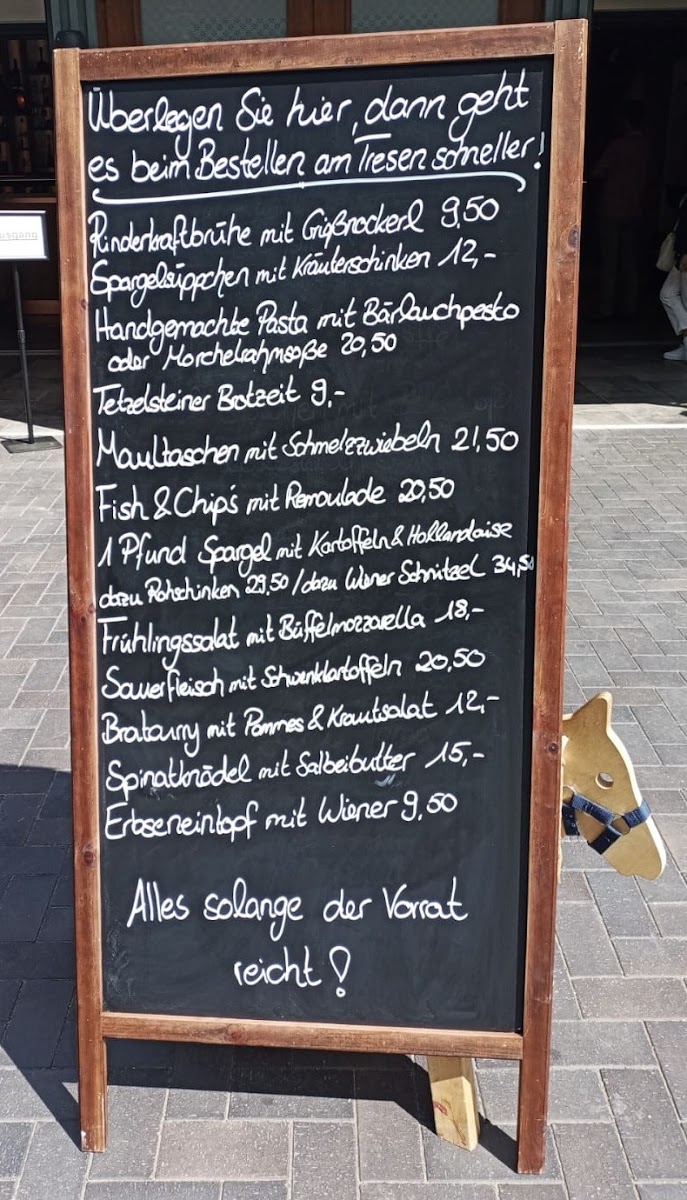 Überlegen Sie hier, dann geht
es beim Bestellen am Tresen schneller!
Rinderkraftbrühe mit Grießnockerl 9,50
Spargelsüppchen mit Kräuterschinken 12,-
Handgemachte Pasta mit Bärlauchpesto
oder Morchelrahmsoße 20,50
Tetzelsteiner Brotzeit 9,-
Maultaschen mit Schmelzzwiebeln 21,50
Fish & Chip's mit Remoulade 20,50
1 Pfund Spargel mit Kartoffeln & Hollandaise
dazu Rohschinken 29,50 / dazu Wiener Schnitzel 34,50
Frühlingssalat mit Büffelmozzarella 18,-
Sauerfleisch mit Schwenkkartoffeln 20,50
Bratcurry mit Pommes & Krautsalat 12,-
Spinatknödel mit Salbeibutter 15,-
Erbseneintopf mit Wiener 9,50
Alles solange der Vorrat
reicht!